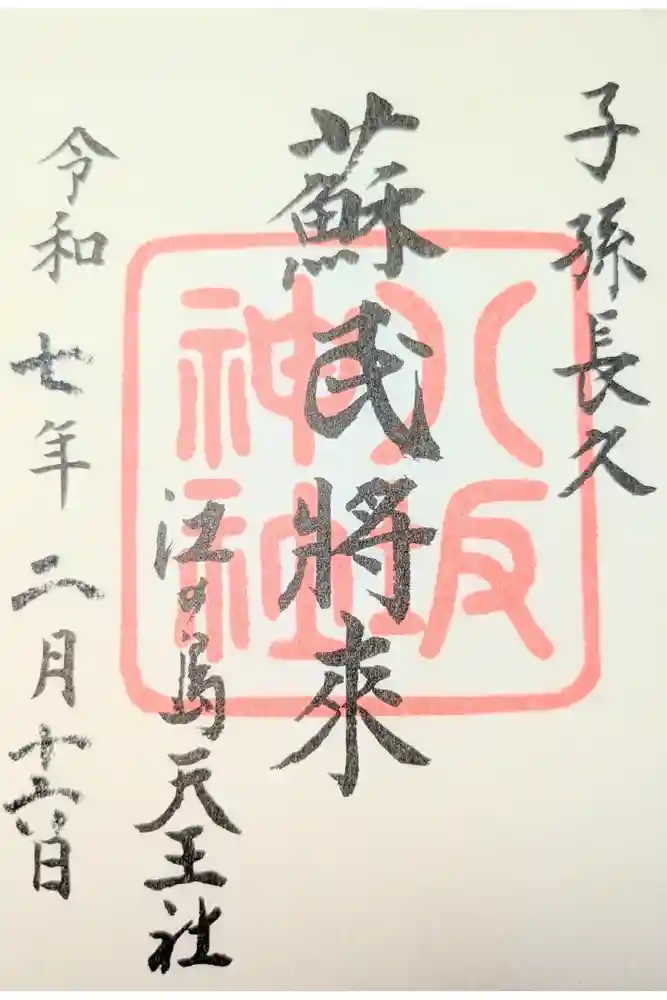 子孫長久
蘇民將來
八坂神社
江の島天王社
令和七年二月十六日